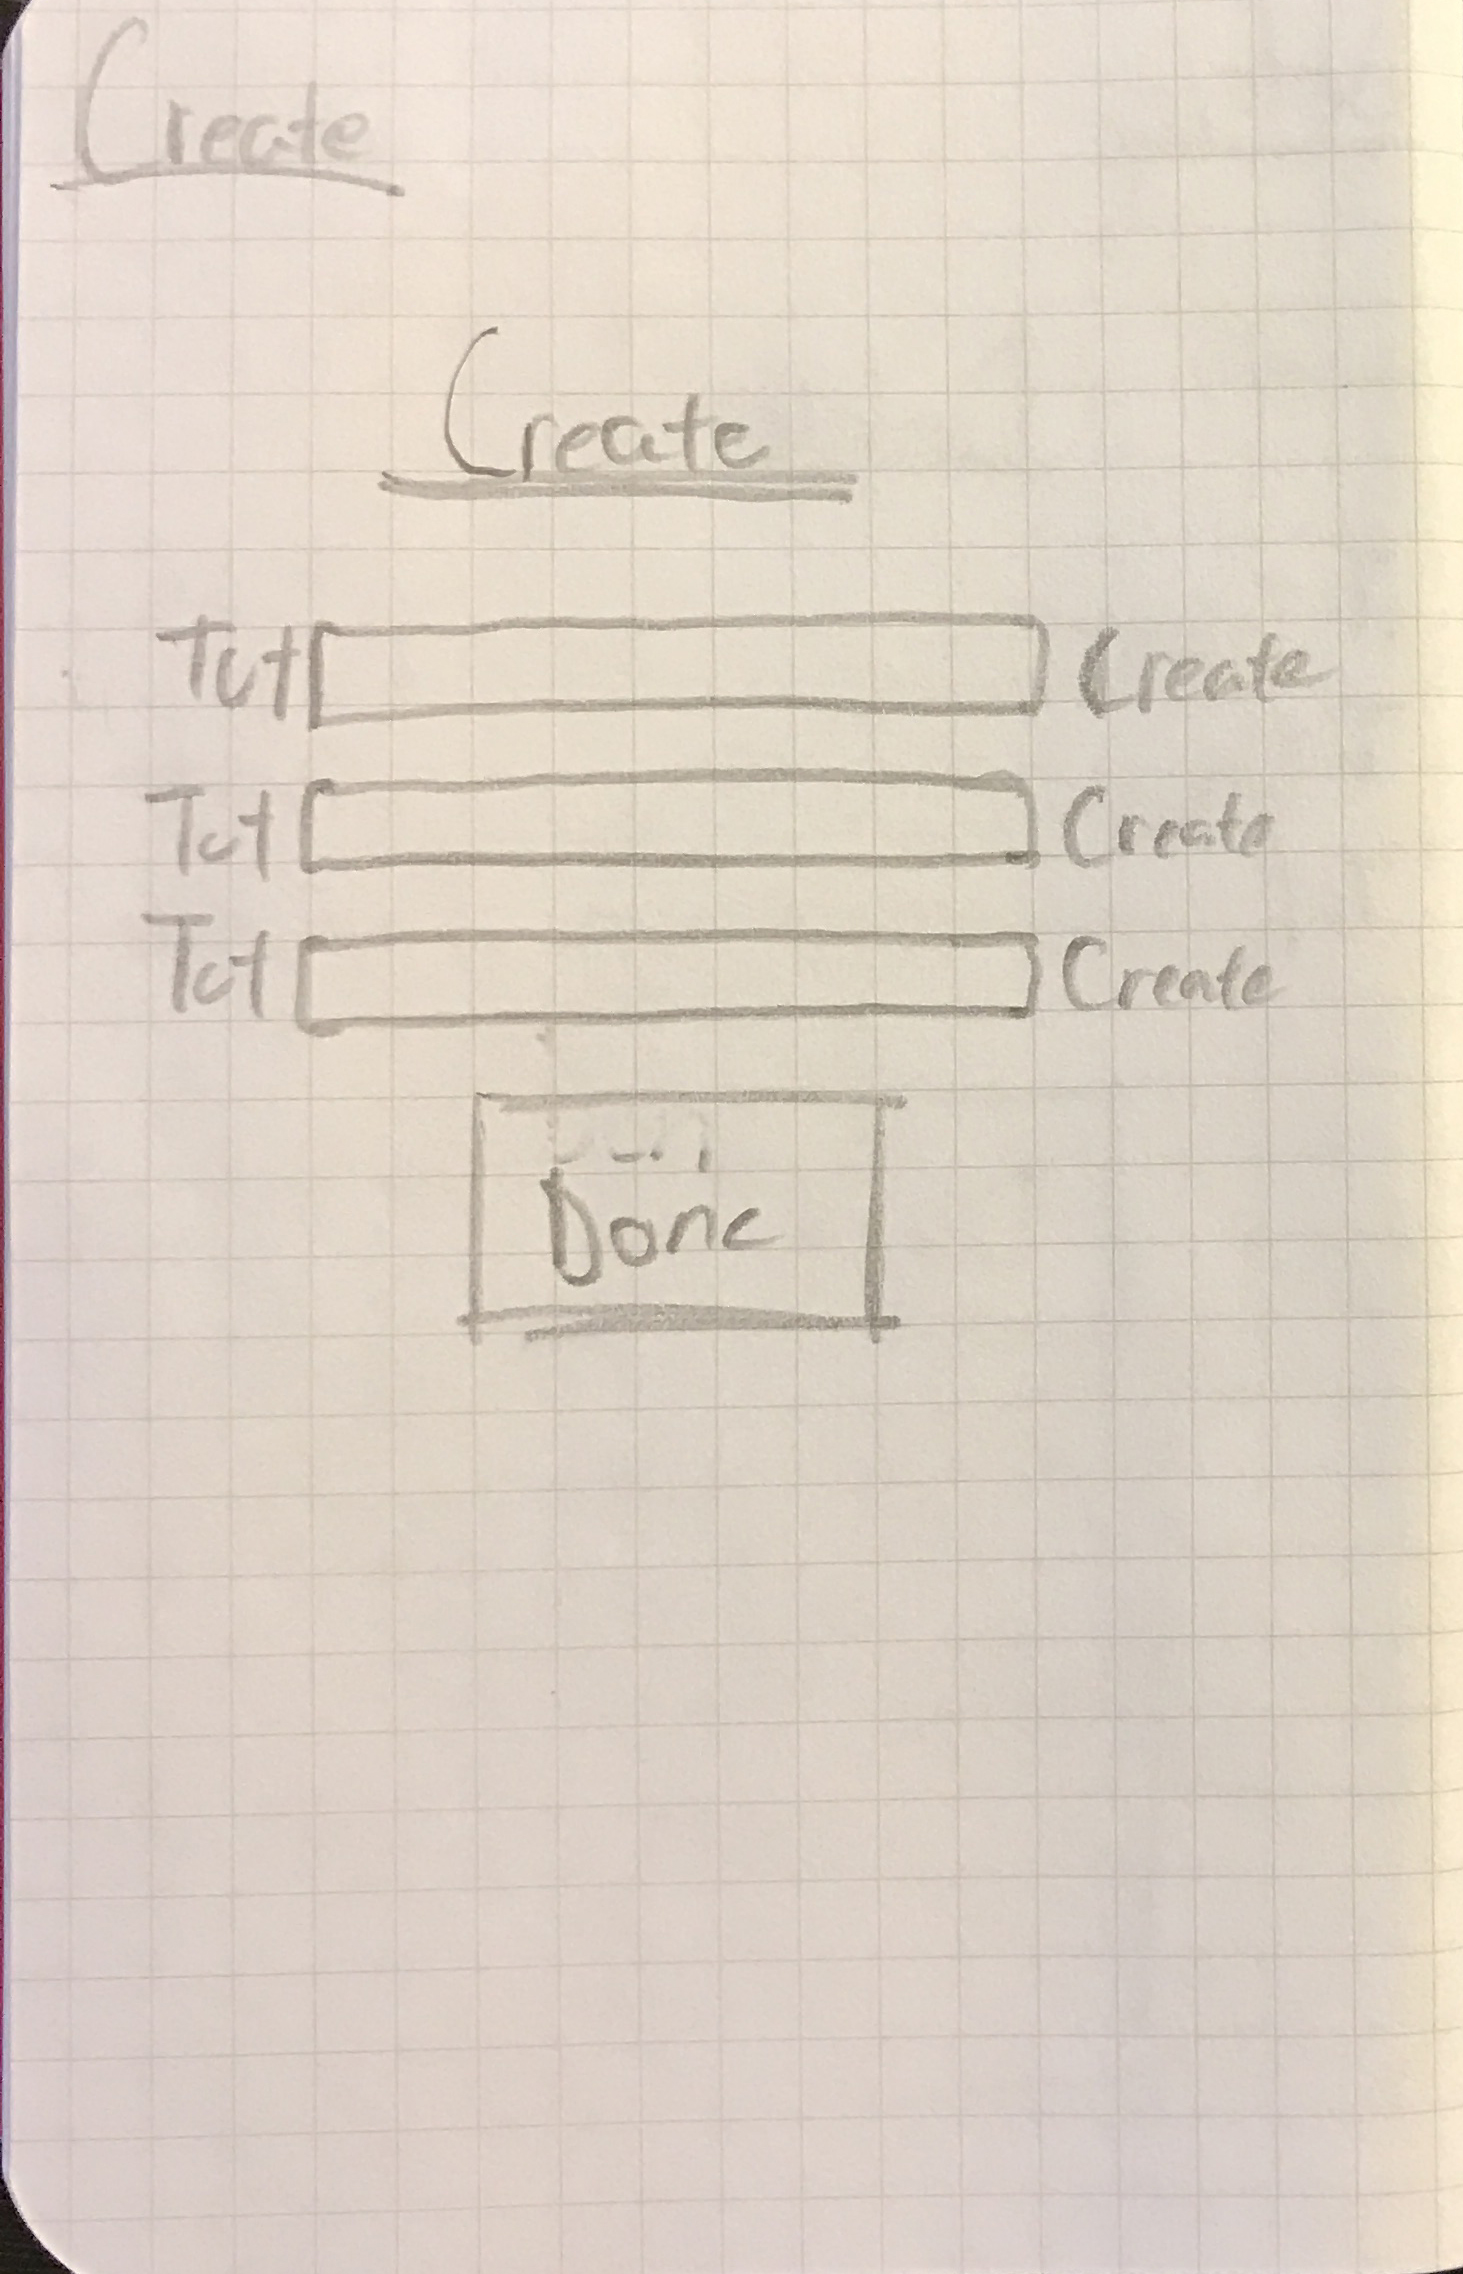 Create
Create
Tct Create
Tct Create
Tct Create
Done